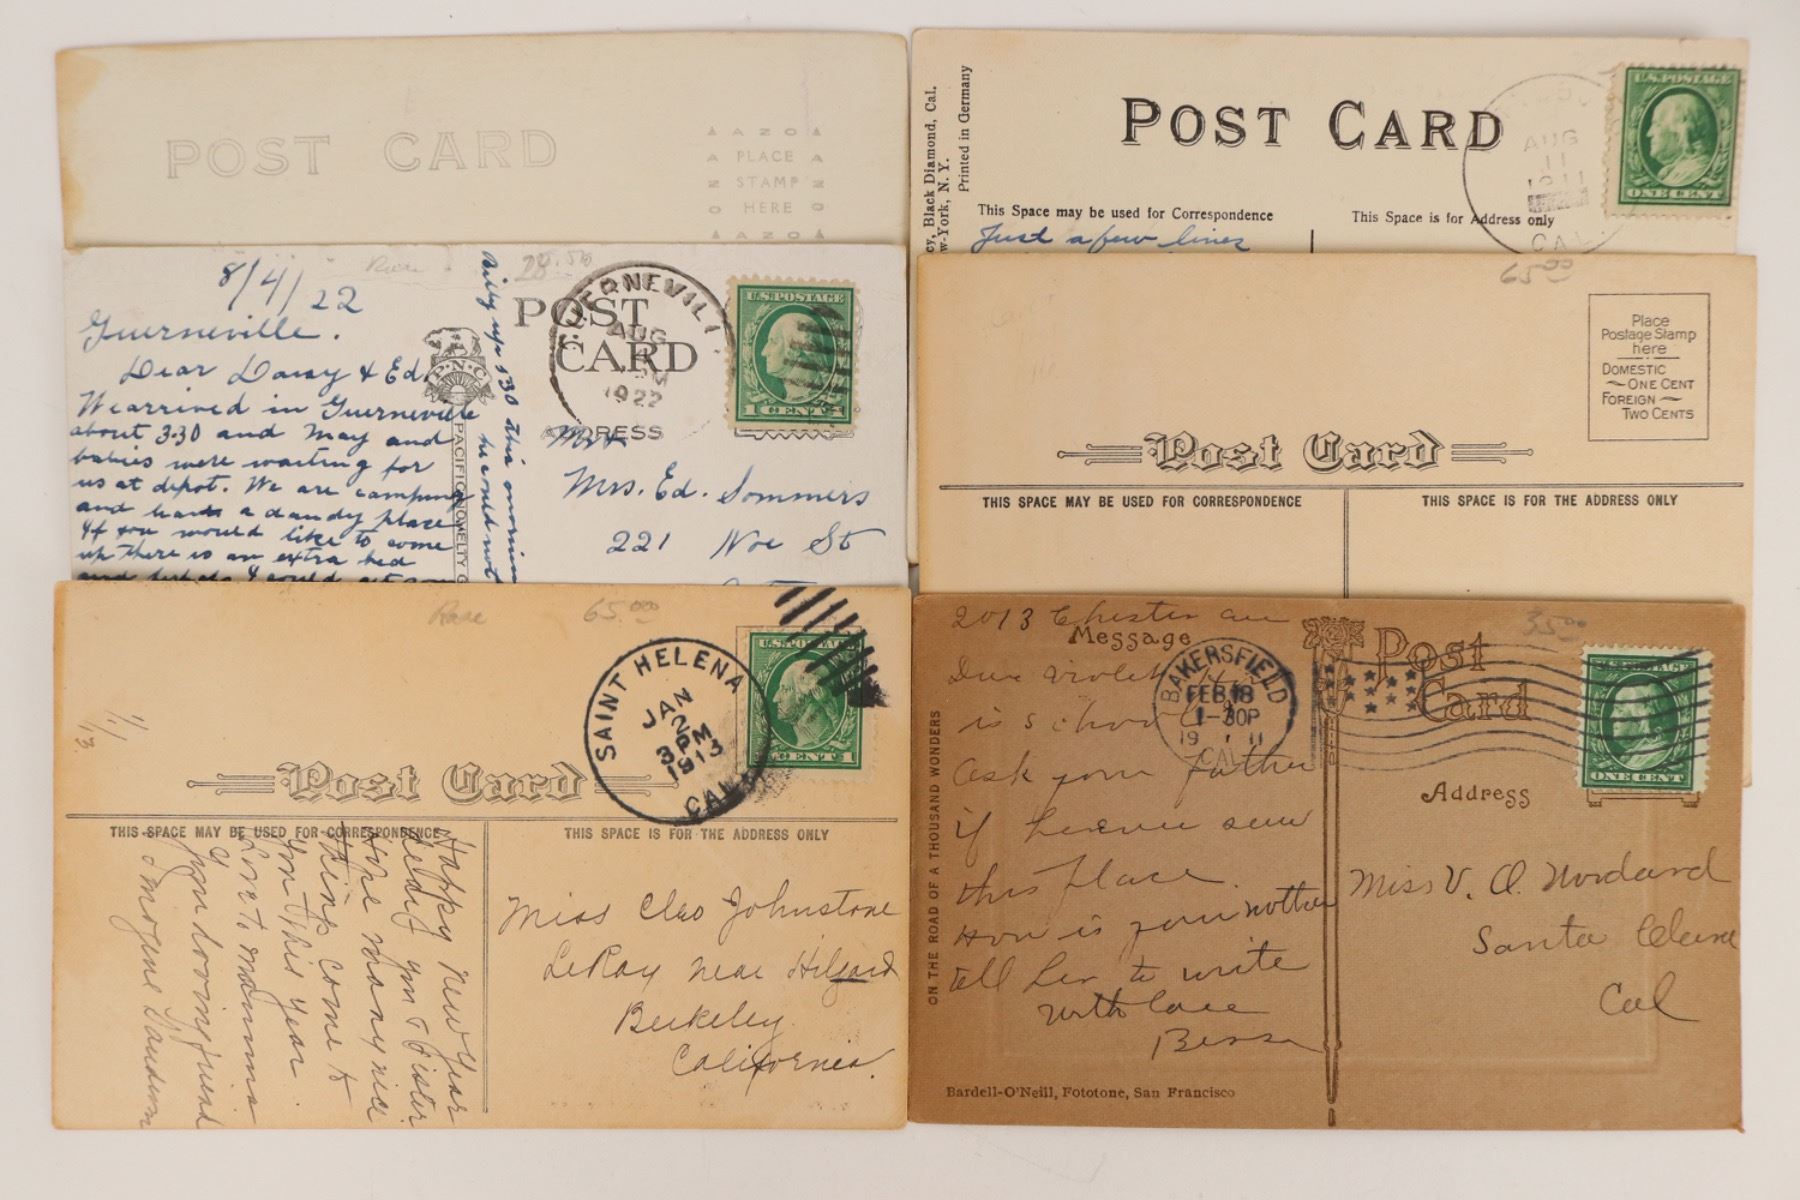 POST CARD
AZO
PLACE
STAMP
HERE
AZO
cy, Black Diamond, Cal.
w-York, N. Y.
Printed in Germany
POST CARD
AUG
11
1911
CAL.
U.S. POSTAGE
ONE CENT
This Space may be used for Correspondence
This Space is for Address only
Just a few lines
8/4/22
Rare
28.50
Guerneville.
Dear Daisy & Ed,
We arrived in Guerneville
about 3.30 and May and
babies were waiting for
us at depot. We are camping
and have a dandy place
If you would like to come
up there is an extra bed
and
Billy up 5:30 this morning
he could not
P.N.C.
PACIFIC NOVELTY C
POST
CARD
GUERNEVILL
AUG
PM
1922
U.S. POSTAGE
1 CENT 1
ADDRESS
Mr &
Mrs. Ed. Sommers
221 Noe St
65.00
Place
Postage Stamp
here
DOMESTIC
ONE CENT
FOREIGN
TWO CENTS
Post Card
THIS SPACE MAY BE USED FOR CORRESPONDENCE
THIS SPACE IS FOR THE ADDRESS ONLY
Rare 65.00
1/1/13
SAINT HELENA
JAN
2
3 PM
1913
CAL.
U.S. POSTAGE
CENT 1
Post Card
THIS SPACE MAY BE USED FOR CORRESPONDENCE
THIS SPACE IS FOR THE ADDRESS ONLY
Happy New Year
Leady you & Sister
Hope many nice
things come to
you this year.
Love to mamma
Your loving friend
Imogene
Miss Cleo Johnstone
LeRoy near Hilgard
Berkeley
California.
2013 Chester ave
Message
Post
Card
35.00
BAKERSFIELD
FEB 18
1-30P
1911
CAL.
U.S. POSTAGE
ONE CENT
Dear Violet
is school
Ask your father
if he ever saw
this place.
How is your mother
tell her to write
with love
Bess
Address
Miss V. A. Woodard
Santa Clara
Cal
ON THE ROAD OF A THOUSAND WONDERS
Bardell-O'Neill, Fototone, San Francisco